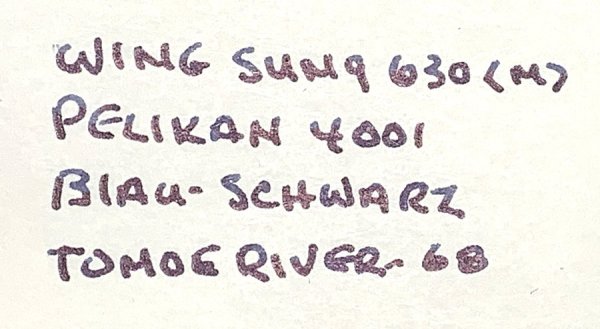 WING SUNG 630 <M>
PELIKAN 4001
BLAU-SCHWARZ
TOMOE RIVER-68